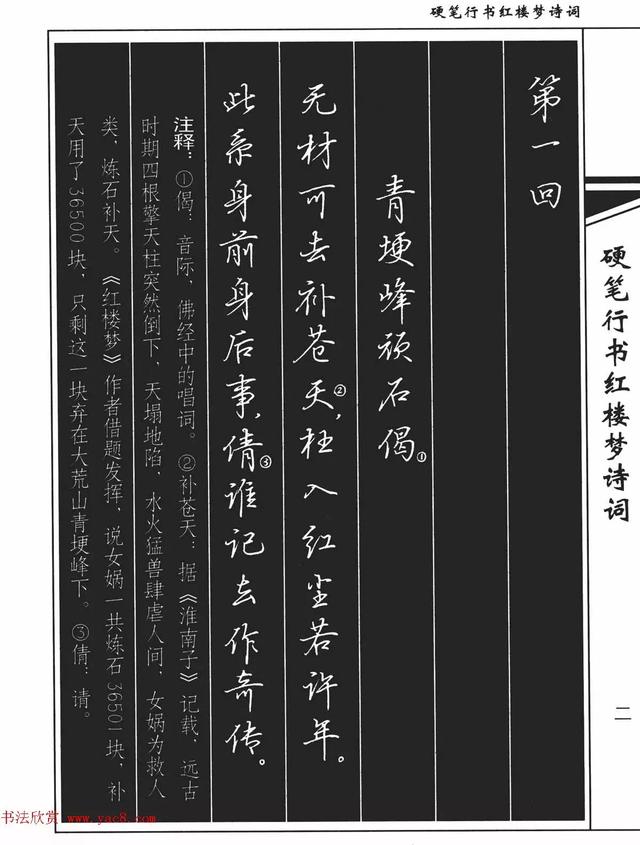 硬笔行书红楼梦诗词
第一回
青埂峰顽石偈①
无材可去补苍天②,枉入红尘若许年。
此系身前身后事,倩③谁记去作奇传。
注释：①偈：音际，佛经中的唱词。②补苍天：据《淮南子》记载，远古
时期四根擎天柱突然倒下，天塌地陷，水火猛兽肆虐人间，女娲为救人
类，炼石补天。《红楼梦》作者借题发挥，说女娲一共炼石36501块，补
天用了36500块，只剩这一块弃在大荒山青埂峰下。③倩：请。
硬笔行书红楼梦诗词
二
书法欣赏 www.yac8.com